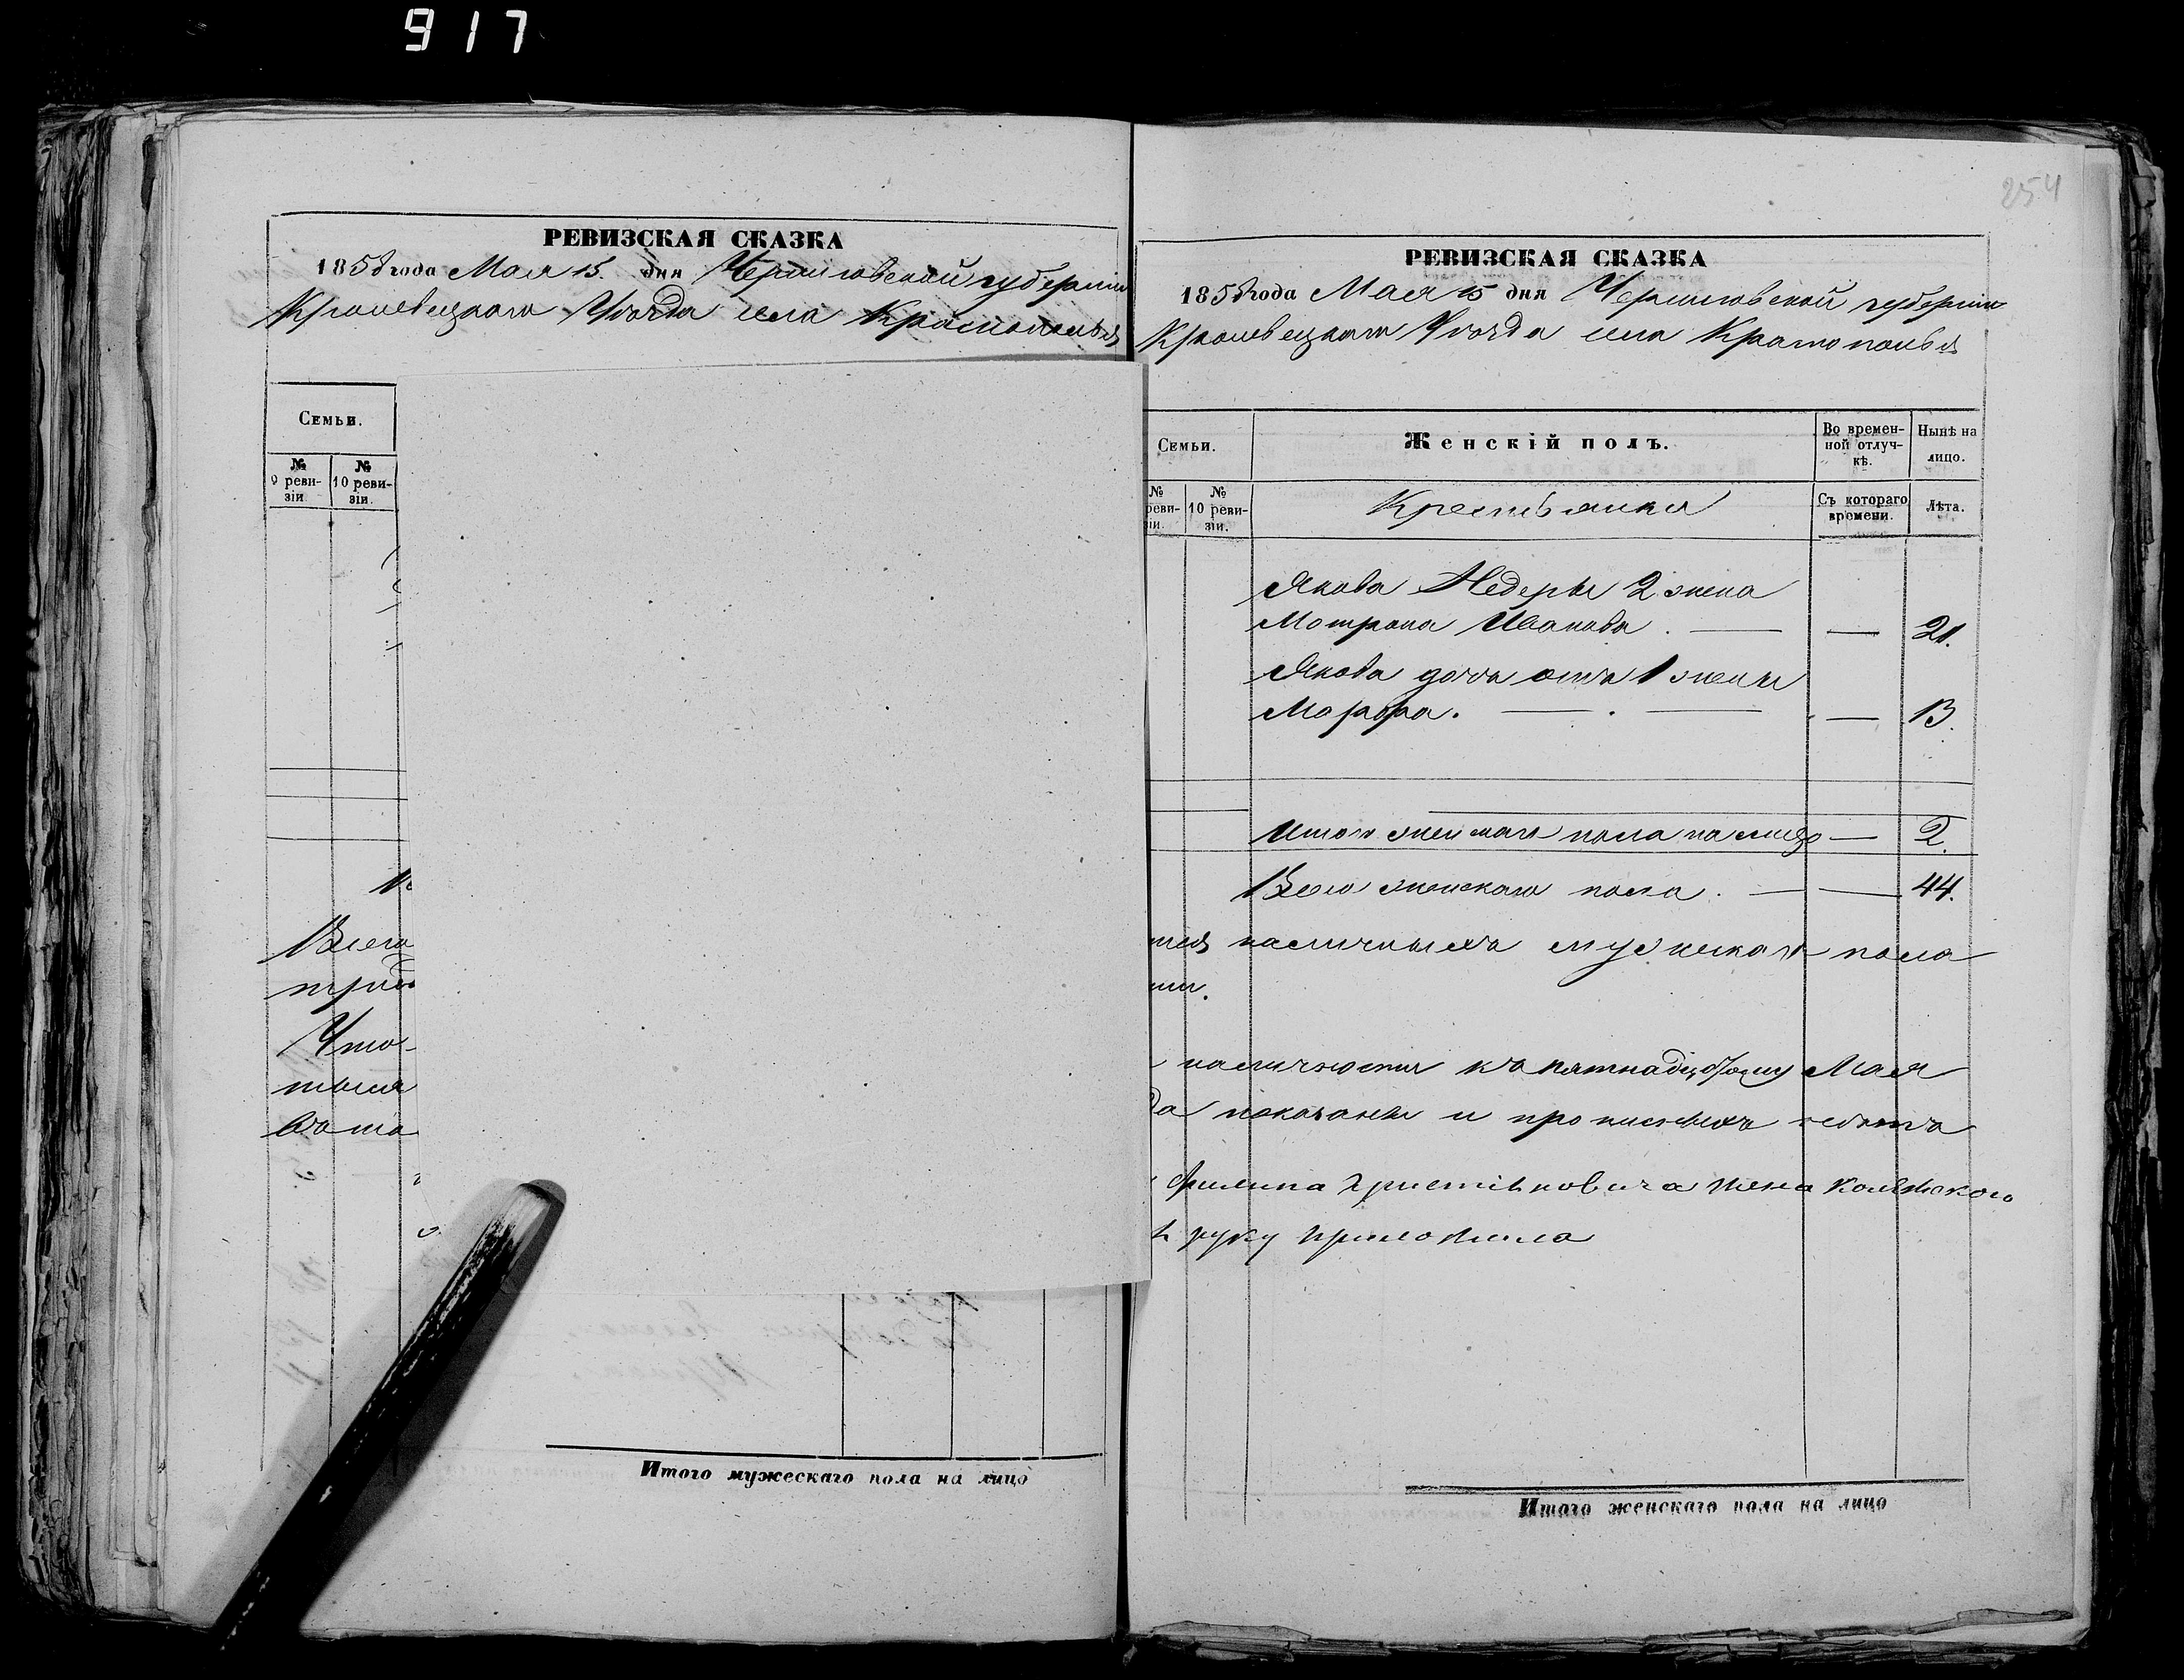 917
РЕВИЗСКАЯ СКАЗКА
1858 года Мая 15. дня Черниговской губернии
Кролевецкаго Уѣзда села Краснополья
Семьи.
№ 9 реви-зіи.
№ 10 реви-зіи.
Всего
трид
Что
тыся
ваша
Итого мужескаго пола на лицо
254
РЕВИЗСКАЯ СКАЗКА
1858 года Мая 15 дня Черниговской губернии
Кролевецкаго Уѣзда села Краснополья
Семьи.
Женскій полъ.
Во времен-ной отлуч-кѣ.
Нынѣ на лицо.
№ реви-зіи.
№ 10 реви-зіи.
Крестьянки
Съ котораго времени.
Лѣта.
Якова 2 жена
Мотрона Иванова . — — 21.
Якова дочь отъ 1 жены
Марфа. — . — — 13.
Итого женскаго пола на лицо — 2.
Всего женскаго пола . — — 44.
наличныхъ мужескаго пола
наличности къ пятнадцатому Мая
показаны и прописныхъ нѣтъ
Филипа жена
руку приложила
Итого женскаго пола на лицо